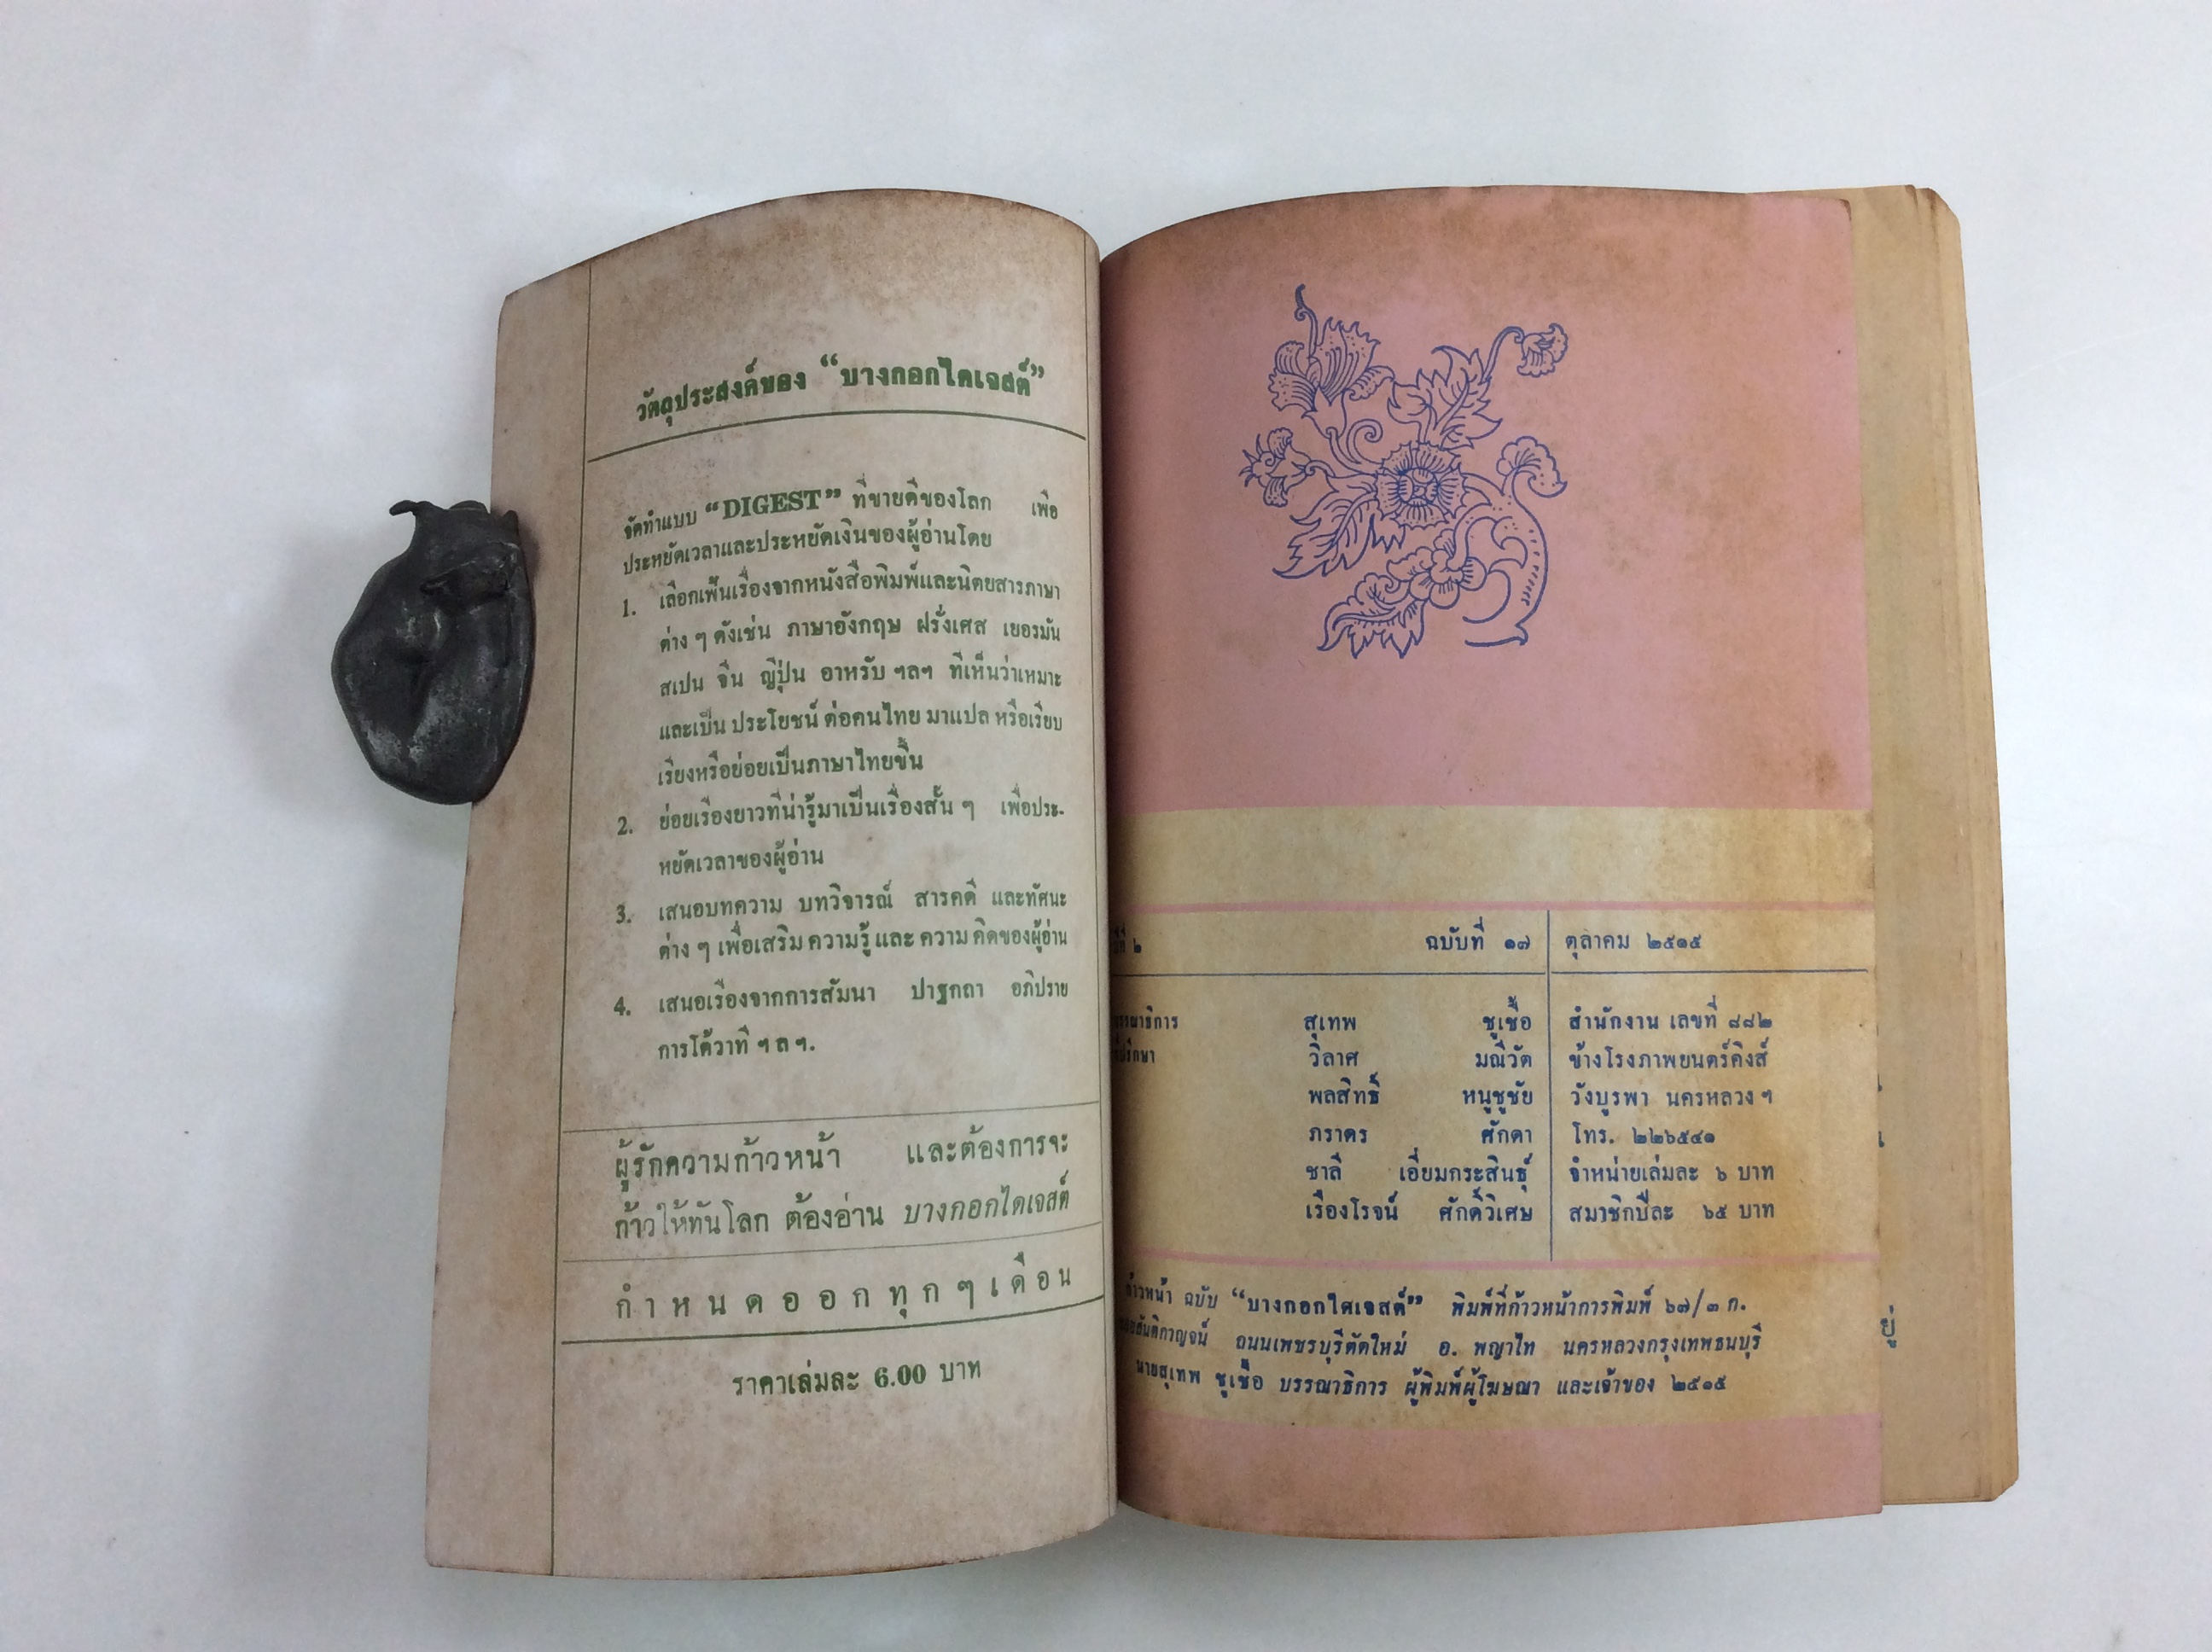 วัตถุประสงค์ของ “บางกอกไดเจสต์”
จัดทำแบบ “DIGEST” ที่ขายดีของโลก เพื่อ
ประหยัดเวลาและประหยัดเงินของผู้อ่านโดย
1. เลือกเฟ้นเรื่องจากหนังสือพิมพ์และนิตยสารภาษา
ต่าง ๆ ดังเช่น ภาษาอังกฤษ ฝรั่งเศส เยอรมัน
สเปน จีน ญี่ปุ่น อาหรับ ฯลฯ ที่เห็นว่าเหมาะ
และเป็น ประโยชน์ ต่อคนไทย มาแปล หรือเรียบ
เรียงหรือย่อยเป็นภาษาไทยขึ้น
2. ย่อยเรื่องยาวที่น่ารู้มาเป็นเรื่องสั้น ๆ เพื่อประ-
หยัดเวลาของผู้อ่าน
3. เสนอบทความ บทวิจารณ์ สารคดี และทัศนะ
ต่าง ๆ เพื่อเสริม ความรู้ และ ความ คิดของผู้อ่าน
4. เสนอเรื่องจากการสัมนา ปาฐกถา อภิปราย
การโต้วาที ฯ ล ฯ.
ผู้รักความก้าวหน้า และต้องการจะ
ก้าวให้ทันโลก ต้องอ่าน บางกอกไดเจสต์
กำหนดออกทุกๆเดือน
ราคาเล่มละ 6.00 บาท
๒ ฉบับที่ ๑๗ ตุลาคม ๒๕๑๕
สุเทพ ชูเชื้อ สำนักงาน เลขที่ ๘๘๒
วิลาศ มณีวัต ข้างโรงภาพยนตร์คิงส์
พลสิทธิ์ หนูชูชัย วังบูรพา นครหลวง ฯ
ภราดร ศักดา โทร. ๒๒๖๕๔๑
ชาลี เอี่ยมกระสินธุ์ จำหน่ายเล่มละ ๖ บาท
เรืองโรจน์ ศักดิ์วิเศษ สมาชิกปีละ ๖๕ บาท
ก้าวหน้า ฉบับ “บางกอกไดเจสต์” พิมพ์ที่ก้าวหน้าการพิมพ์ ๖๗/๓ ก.
ถนนเพชรบุรีตัดใหม่ อ. พญาไท นครหลวงกรุงเทพธนบุรี
นายสุเทพ ชูเชื้อ บรรณาธิการ ผู้พิมพ์ผู้โฆษณา และเจ้าของ ๒๕๑๕
ยู่